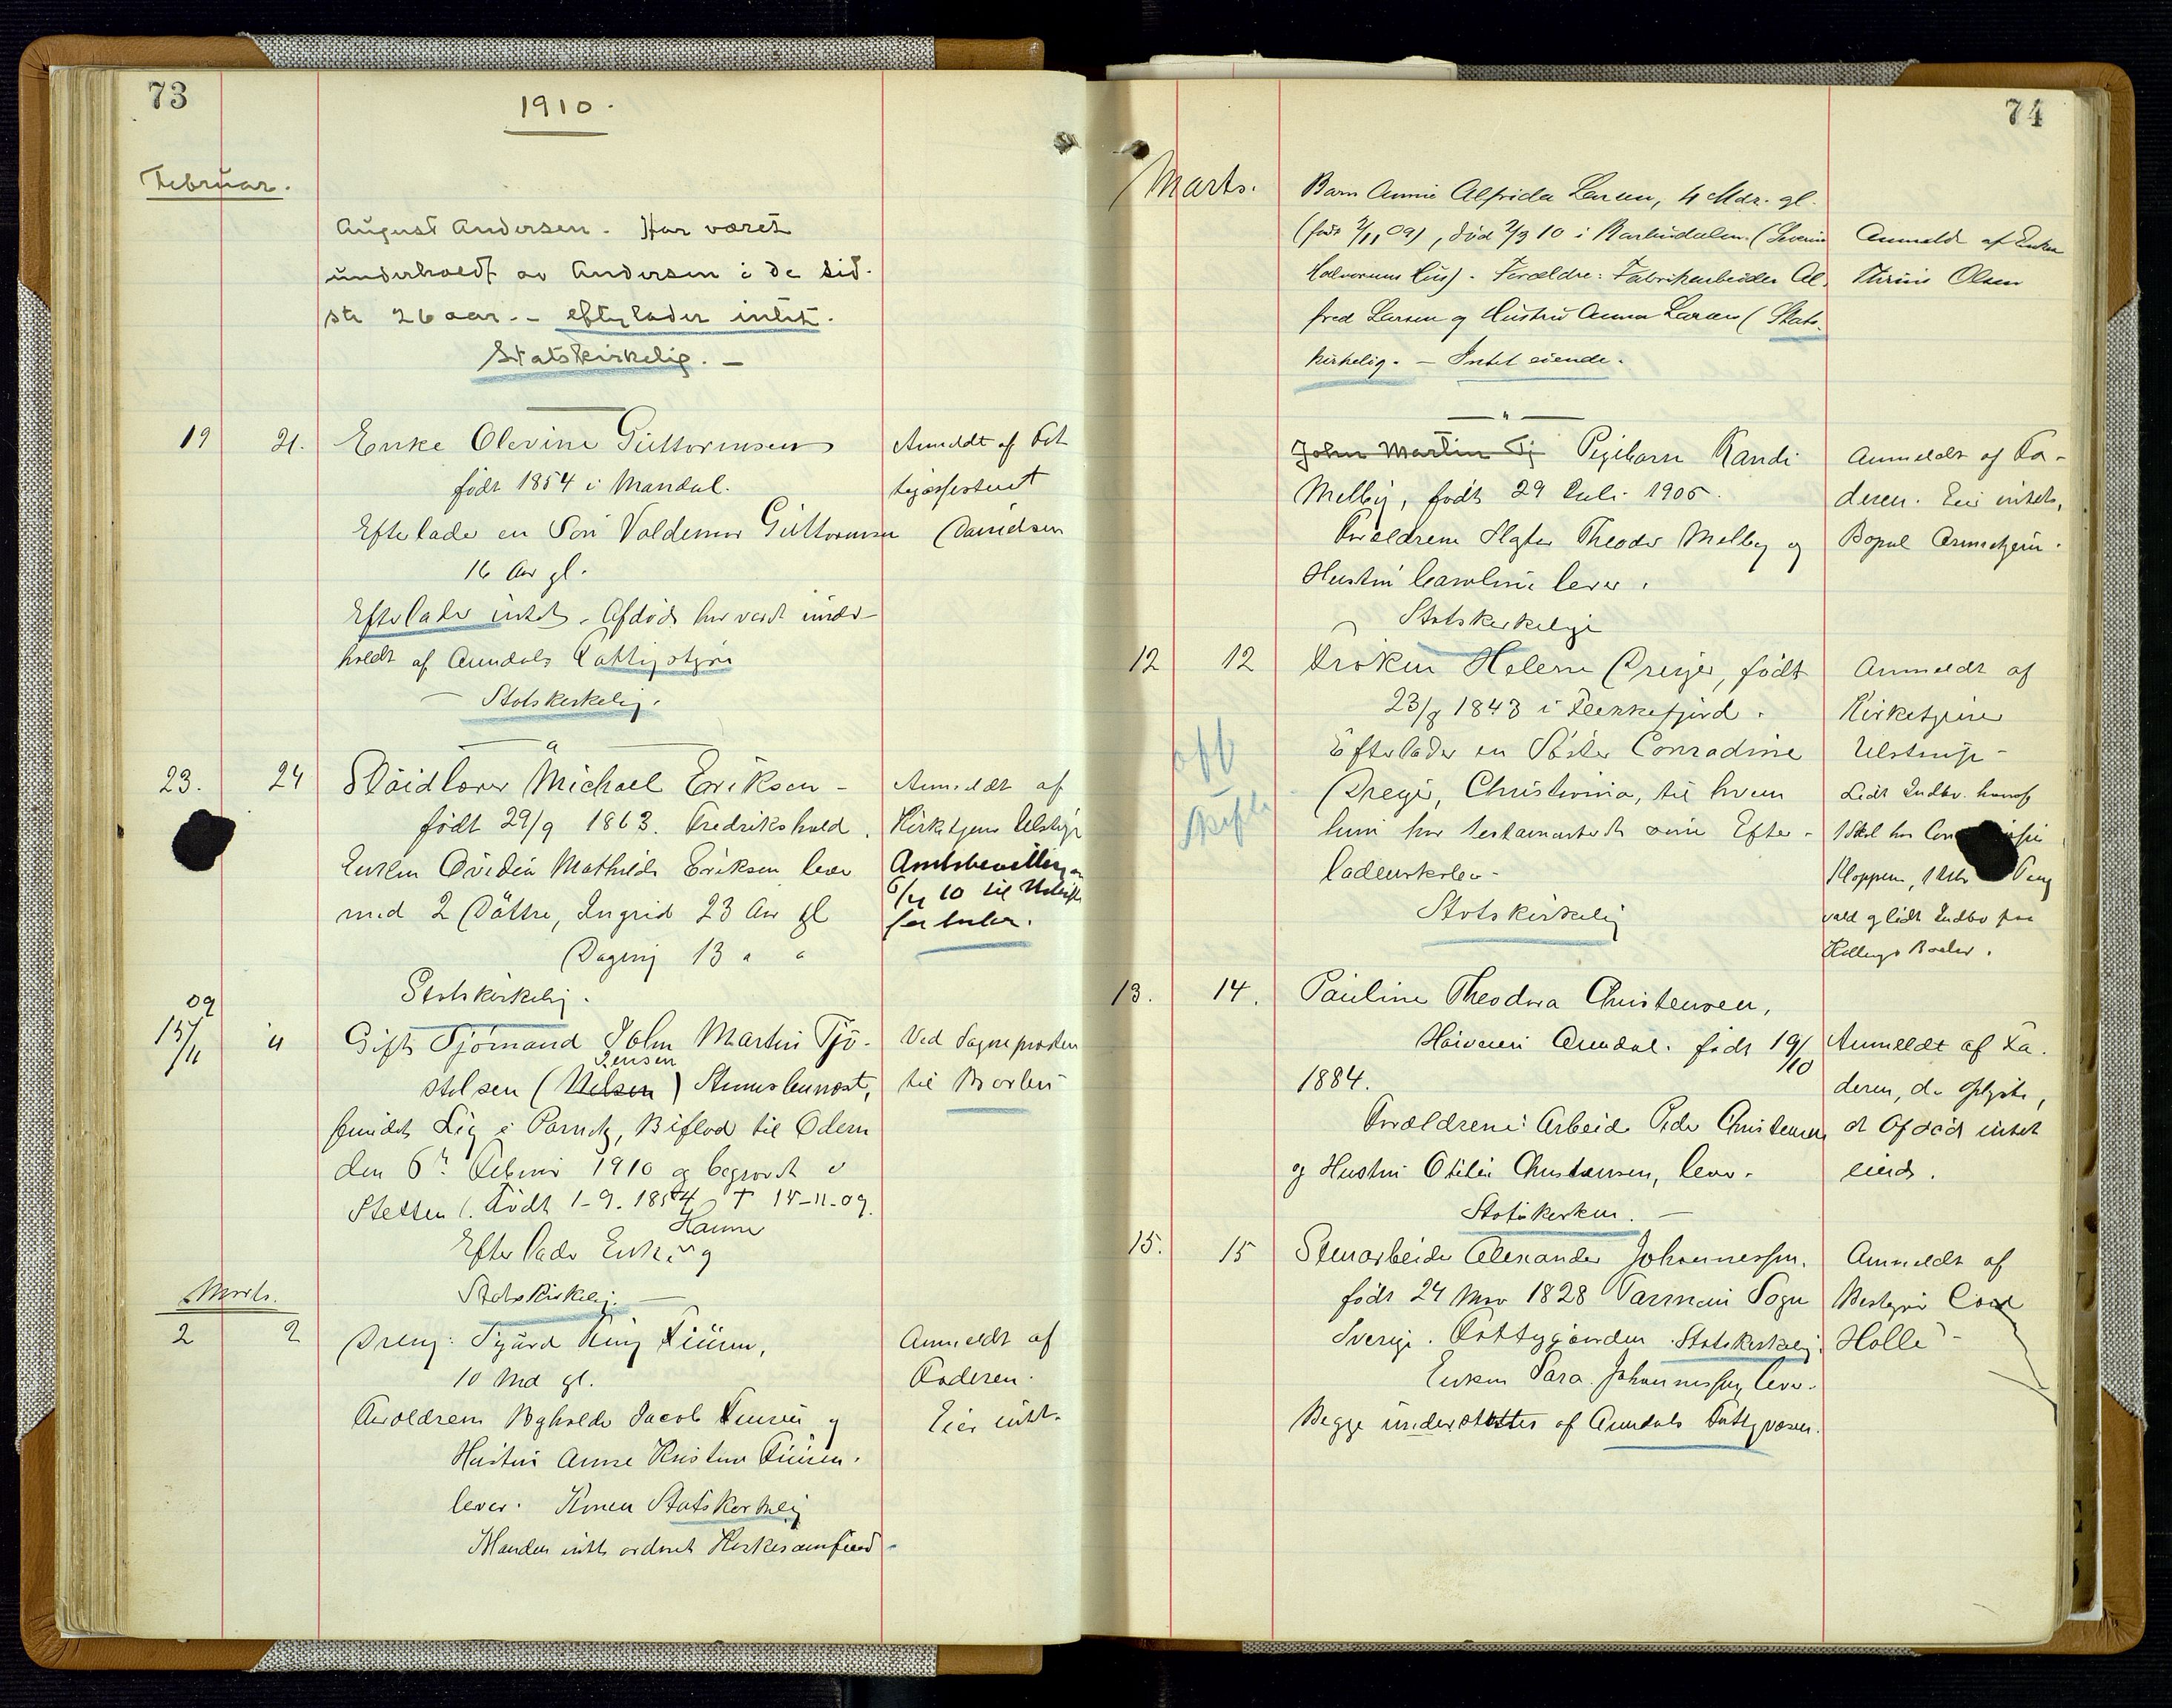 73
1910.
Februar.
August Andersen. Har været
underholdt av Andersen i de sid-
ste 26 aar. - efterlader intet.
Statskirkelig. -
19 21. Enke Olevine Guttormsen
født 1854 i Mandal.
Efterlader en Søn Valdemar Guttormsen
16 Aar gl.
Efterlader intet. Afdøde har været under-
holdt af Arendals Fattigstyre
Statskirkelig.
Anmeldt af Fat
tigassistent
Davidsen
23. 24 Sløidlærer Michael Eriksen -
født 29/9 1863. Fredrikshald.
Enken Ovidia Mathilde Eriksen lever
med 2 Døttre, Ingrid 23 Aar gl
Dagny 13 " "
Statskirkelig.
Anmeldt af
Kirketjener
Amtsbevilling
6/4 10 til Uskifte
for enken.
09
15/11 " Gift Sjømand John Martin Tjø-
stelsen (Nilsen) Jensen
fundet Lig i Parnitz, Biflod til Odern
den 6te Februar 1910 og begravet i
Stettin. Født 1-9-1854 † 15-11-09.
Efterlader Enke Hanna
Statskirkelig. -
Ved Sogneprosten
til Barbu
Marts.
2 2 Dreng: Sigurd King
10 Md gl.
Forældrene Bogholder Jacob
Hustru Anne Kristine
lever. Konen Statskirkelig
Manden intet ordnet Kirkesamfund -
Anmeldt af
Faderen.
Eier intet.
74
Marts. Barn Annie Alfrida Larsen, 4 Mdr. gl.
(født 2/11 09), død 2/3 10 i Barbudalen. (Severin
Halvorsens Hus). Forældre: Fabrikarbeider Al-
fred Larsen og Hustru Anna Larsen (Stats-
kirkelig. - Intet eiende.
Anmeldt af Enken
Olsen
John Martin Tj Pigebarn Randi
Melby, født 29 Juli 1905.
Forældrene Slagter Theodor Melby og
Hustru Caroline lever.
Statskirkelige
Anmeldt af Fa-
deren. Eier intet,
Bopæl
12 12 Frøken Helene Dreyer, født
23/8 1843 i Flekkefjord.
Efterlader en Søster Conradine
Dreyer, Christiania, til hvem
hun har testamenteret sine Efter-
ladenskaber -
Statskirkelig
off
skifte
Anmeldt af
Kirketjener
Ulstrup -
Lidt Indbo
vald og lidt Indbo paa
13. 14. Pauline Theodora Christensen,
Arendal. født 19/10
1884.
Forældrene: Arbeider Peder Christensen
og Hustru Otilie Christensen, lever.
Statskirken. -
Anmeldt af Fa-
deren, der oplyste,
at Afdøde intet
eiede.
15. 15 Stenarbeider Alexander Johannessen.
født 24 Nov 1828 Sogn
Sverige. Statskirkelig.
Enken Sara Johannessen lever.
Begge understøttes af Arendals Fattigvæsen.
Anmeldt af
Bestyrer
Holle -